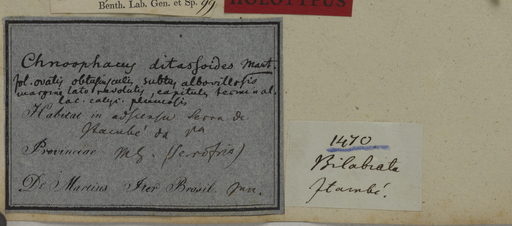 Benth. Lab. Gen. et Sp. 99
HOLOTYPUS
ditassoides Mart.
fol. ovatis obtusiusculis, subtus albovillosis
margine late revolutis, capitulis terminal.
lac. calyc. plumosis
Habitat in adscensu Serra de
Itambé da Va
Provinciae M.G. (Serro frio)
Dr Martius Iter Brasil.
1470
Bilabiata
Itambé.